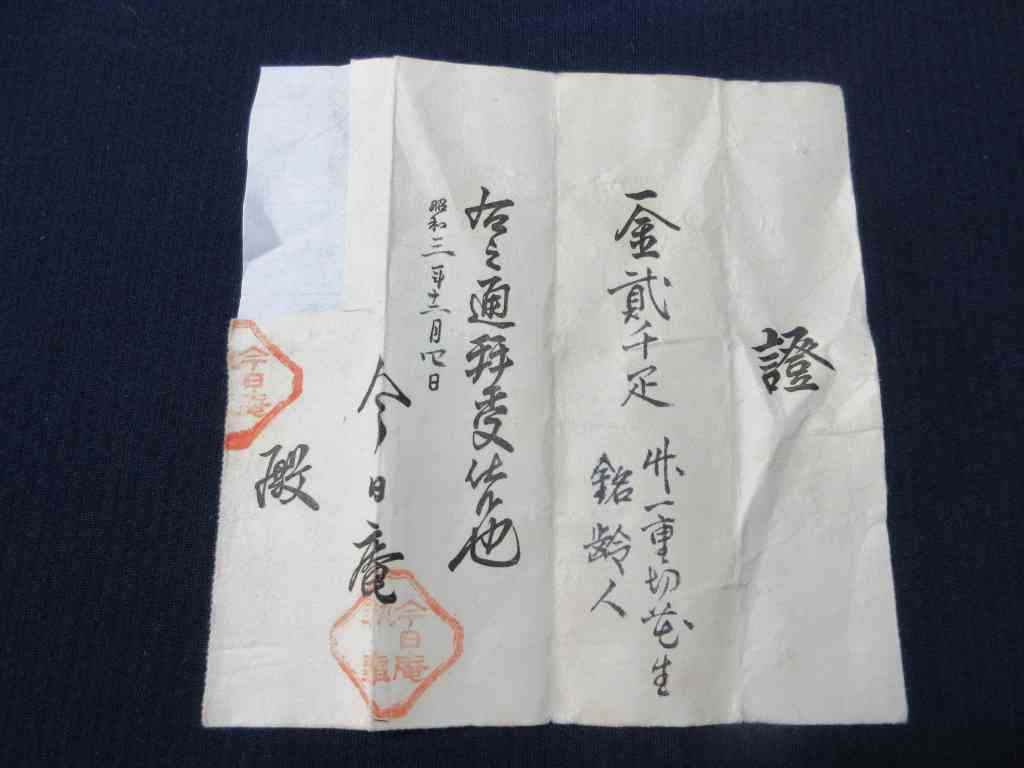 證
一金貳千疋
竹一重切花生
銘齢人
右之通拜受仕候也
昭和三年十二月四日
今日庵
殿
今日庵
今日庵